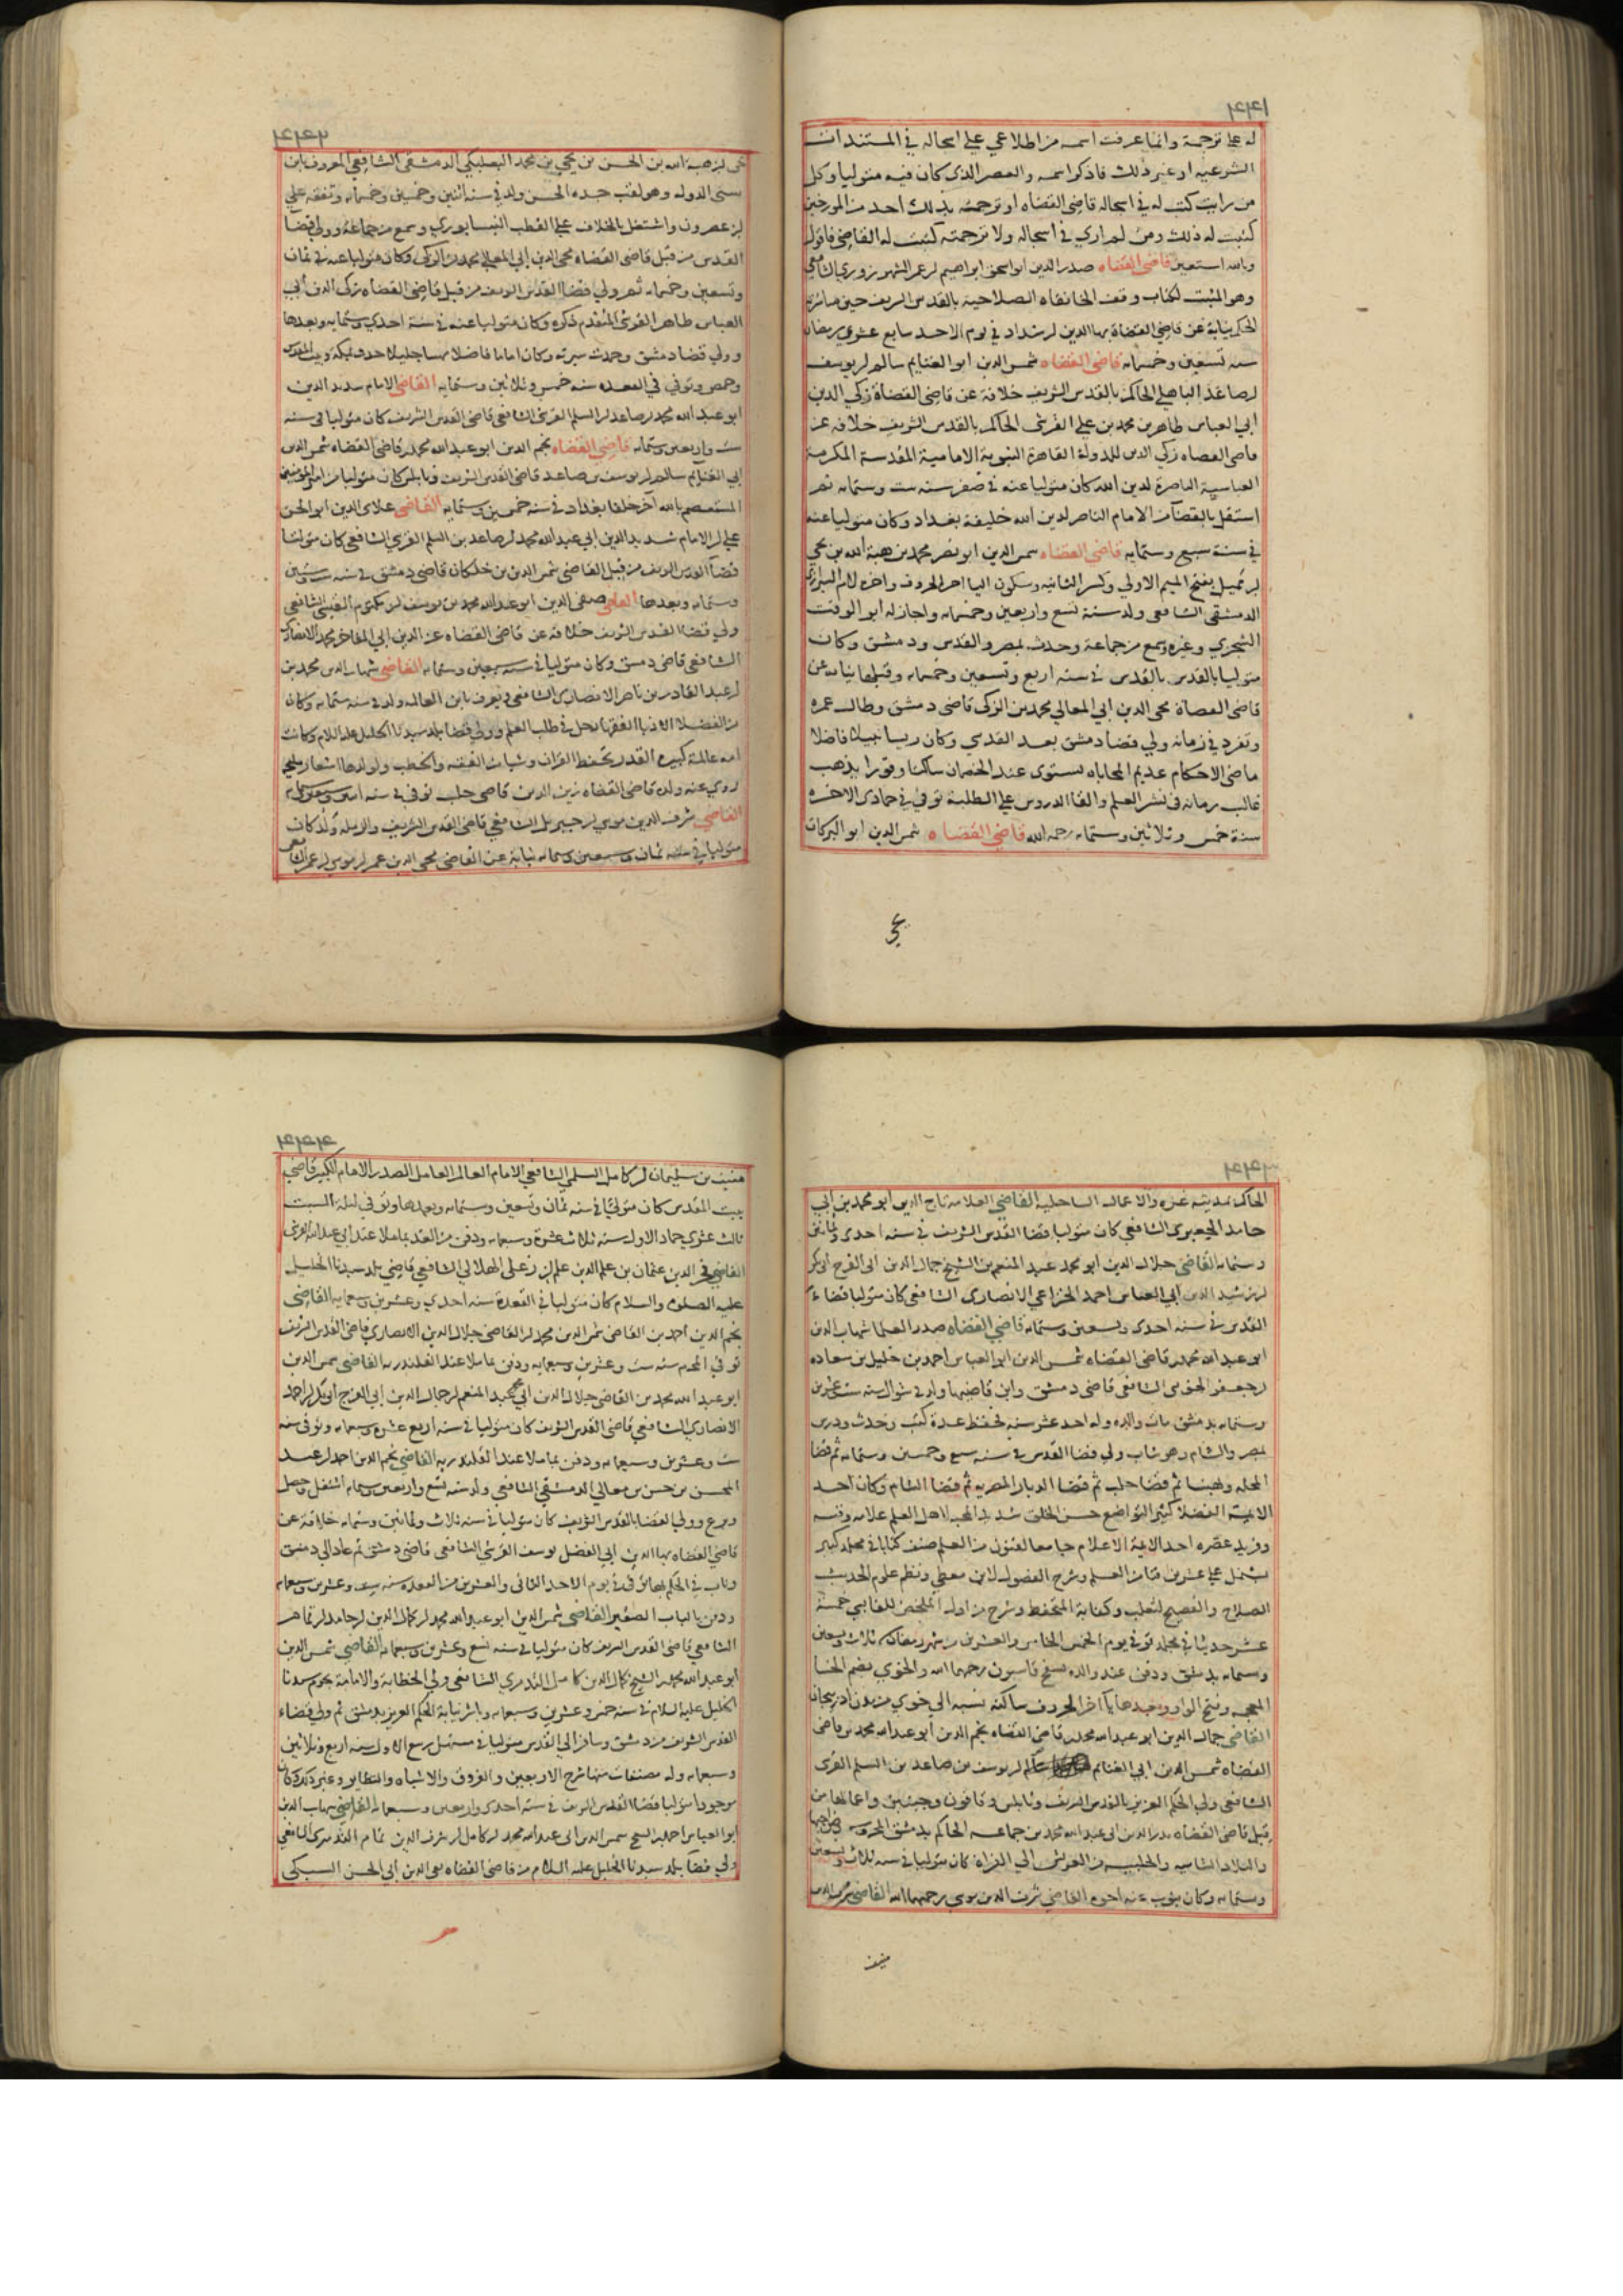 له على ترجمة وانما عرفت اسمه من اطلاعي على اسجاله في المستندات
الشرعيه او غير ذلك فاذكر اسمه والعصر الذي كان فيه متوليا وكل
من رايت كتب له في اسجاله قاضي القضاه او ترجمه بذلك احد من المورخين
كتبت له ذلك ومن لم اري في اسجاله ولا ترجمته كتبت له القاضي فاقول
وبالله استعين قاضي القضاه صدر الدين ابو اسحق ابراهيم بن عمر الشهرزوري الشافعي
وهو المثبت لكتاب وقف الخانقاه الصلاحية بالقدس الشريف حين
الحكم نيابة عن قاضي القضاة بهاالدين بن شداد في يوم الاحد سابع عشري رمضان
سنه تسعين وخمسمايه قاضي القضاه شمس الدين ابو الغنايم سالم بن يوسف
بن صاعد الباهلي الحاكم بالقدس الشريف خلافة عن قاضي القضاة زكي الدين
ابي العباس طاهر بن محمد بن علي القرشي الحاكم بالقدس الشريف خلافه عن
قاضي القضاه زكي الدين للدولة القاهرة النبوية الامامية المقدسة المكرمة
العباسية الناصرة لدين الله كان متوليا عنه في صفر سنه ست وستمايه ثم
استقل بالقضا من الامام الناصر لدين الله خليفة بغداد وكان متوليا عنه
في سنة سبع وستمايه قاضي القضاه شمس الدين ابو نصر محمد بن هبة الله بن محمد
بن مميل بفتح الميم الاولي وكسر الثانيه وسكون اليا اخر الحروف واخره لام الشيرازي
الدمشقي الشافعي ولد سنة تسع واربعين وخمسمايه واجاز له ابو الوقت
السجزي وغيره وسمع من جماعة وحدث بمصر والقدس ودمشق وكان
متوليا بالقدس في سنه اربع وتسعين وخمسمايه وقبلها نيابة عن
قاضي القضاة محي الدين ابي المعالي محمد بن الزكي قاضي دمشق وطال عمره
وتفرد في زمانه ولي قضا دمشق بعد القدس وكان ريسا نبيلا فاضلا
ماضي الاحكام عديم المحاباه يستوي عنده الخصمان ساكنا وقورا يذهب
غالب زمانه في نشر العلم والقا الدروس على الطلبة توفي في جمادى الاخره
سنة خمس وثلاثين وستمايه رحمه الله قاضي القضاه شمس الدين ابو البركات
يحي
يحي بن هبة الله بن الحسن بن يحي بن محمد البعلبكي الدمشقي الشافعي المعروف بابن
سني الدوله وهو لقب جده الحسن ولد في سنه اثنين وخمسين وخمسمايه وتفقه على
بن عصرون واشتغل بالخلاف على القطب النيسابوري وسمع من جماعة وولي قضا
القدس من قبل قاضي القضاه محي الدين ابي المعالي محمد بن الزكي وكان متوليا عنه في ثمان
وتسعين وخمسمايه ثم ولي قضا القدس الشريف من قبل قاضي القضاه زكي الدين ابي
العباس طاهر القرشي المتقدم ذكره وكان متوليا عنه في سنة احدى وستمايه وبعدها
وولي قضا دمشق وحمدت سيرته وكان اماما فاضلا مهيبا جليلا حدث بمكة وبيت المقدس
وحمص وتوفي في القعده سنه خمس وثلاثين وستمايه القاضي الامام سديد الدين
ابو عبد الله محمد بن صاعد بن السلم القرشي الشافعي قاضي القدس الشريف كان متوليا في سنه
ست واربعين وستمايه قاضي القضاه نجم الدين ابو عبد الله محمد بن قاضي القضاه شمس الدين
ابي الغنايم سالم بن يوسف بن صاعد قاضي القدس الشريف ونابلس كان متوليا من امير المومنين
المستعصم بالله آخر خلفا بغداد في سنه خمسين وستمايه القاضي علاي الدين ابو الحسن
علي بن الامام سديد الدين ابي عبد الله محمد بن صاعد بن السلم القرشي الشافعي كان متوليا
قضا القدس الشريف من قبل القاضي شمس الدين بن خلكان قاضي دمشق في سنه ستين
وستمايه وبعدها القاضي صفي الدين ابو عبد الله محمد بن يوسف بن مكتوم القيسي الشافعي
ولي قضا القدس الشريف خلافة عن قاضي القضاه عز الدين ابي المفاخر محمد الانصاري
الشافعي قاضي دمشق وكان متوليا في سنه سبعين وستمايه القاضي شهاب الدين محمد بن
بن عبد القادر بن ناصر الانصاري الشافعي ويعرف بابن العالمه ولد في سنه ستمايه وكان
من الفضلا الادبا الفقها رحل في طلب العلم وولي قضا بلد سيدنا الخليل عليه السلام وكانت
امه عالمة كبيرة القدر تحفظ القران وشيا من الفقه والخطب ولولدها اشعار مليحه
روى عنه ولده قاضي القضاه زين الدين قاضي حلب توفي في سنه اثنين وسبعين وستمايه
القاضي شرف الدين موسى بن جبريل الشافعي قاضي القدس الشريف والرمله ولد كان
متوليا في سنه ثمان وسبعين وستمايه نيابة عن القاضي محي الدين عمر بن موسى بن عمر الشافعي
الحاكم بمدينه غزه والاعمال الساحلية القاضي العلامه تاج الدين ابو محمد بن ابي
حامد الجعبري الشافعي كان متوليا قضا القدس الشريف في سنه احدى وثمانين
وستمايه القاضي جلال الدين ابو محمد عبد المنعم بن الشيخ جمال الدين ابي الفرج ابي بكر
بن رشيد الدين ابي العباس احمد الخزاعي الانصاري الشافعي كان متوليا قضاء
القدس في سنه احدى وتسعين وستمايه قاضي القضاه صدر العلما شهاب الدين
ابو عبد الله محمد بن قاضي القضاه شمس الدين ابو العباس احمد بن خليل بن سعاده
بن جعفر الخوي الشافعي قاضي دمشق وابن قاضيها ولد في شوال سنه ست وعشرين
وستمايه بدمشق مات والده وله احد عشر سنه فحفظ عدة كتب وحدث ودرس
بمصر والشام وهو شاب ولي قضا القدس في سنه سبع وخمسين وستمايه ثم قضا
المحله وبهنسا ثم قضا حلب ثم قضا الديار المصريه ثم قضا الشام وكان احد
الايمة الفضلا كثير التواضع حسن الخلق شديد المحبه لاهل العلم علامه وقته
وفريد عصره احد الايمة الاعلام جامعا لفنون من العلم صنف كتابا في مجلد كبير
يشتمل على عشرين فنا من العلم وشرح الفصول لابن معطي ونظم علوم الحديث
الصلاح والفصيح لثعلب وكفاية المتحفظ وشرح من اول الملخص للقابسي خمسة
عشر حديثا في مجلد توفي يوم الخميس الخامس والعشرين من شهر رمضان سنه ثلاث وتسعين
وستمايه بدمشق ودفن عند والده بسفح قاسيون رحمهما الله والخوي بضم الخا
المعجمه وفتح الواو وبعدها يا آخر الحروف ساكنه نسبه الى خوي من مدن اذربيجان
القاضي جمال الدين ابو عبد الله محمد بن قاضي القضاه نجم الدين ابو عبد الله محمد بن قاضي
القضاه شمس الدين ابي الغنايم سالم بن يوسف بن صاعد بن السلم القرشي
الشافعي ولي الحكم العزيز بالقدس الشريف ونابلس وقاقون وجينين واعمالها من
قبل قاضي القضاه بدر الدين ابي عبد الله محمد بن جماعه الحاكم بدمشق المحروسه
والبلاد الشاميه والحلبيه من العريش الى الفراة كان متوليا في سنه ثلاث وتسعين
وستمايه وكان ينوب عنه اخوه القاضي شرف الدين موسى رحمهما الله القاضي شرف الدين
منيف
منيف بن سليمان بن كامل السلمي الشافعي الامام العالم العامل الصدر الامام الكبير قاضي
بيت المقدس كان متوليا في سنه ثمان وتسعين وستمايه وبعدها وتوفي في ليلة السبت
ثالث عشري جماد الاول سنه ثلاث عشرة وسبعمايه ودفن من الغد بماملا عند ابي عبد الله القرشي
القاضي فخر الدين عثمان بن علم الدين علي الهلالي الشافعي قاضي بلد سيدنا الخليل
عليه الصلوة والسلام كان متوليا في القعدة سنه احدى وعشرين وسبعمايه القاضي
نجم الدين احمد بن القاضي شمس الدين محمد بن القاضي جلال الدين الانصاري قاضي القدس الشريف
توفي في المحرم سنه ست وعشرين وسبعمايه ودفن بماملا عند القلندريه القاضي شمس الدين
ابو عبد الله محمد بن القاضي جلال الدين ابي محمد عبد المنعم بن جمال الدين ابي الفرج ابو بكر بن احمد
الانصاري الشافعي قاضي القدس الشريف كان متوليا في سنه اربع عشره وسبعمايه وتوفي سنه
ست وعشرين وسبعمايه ودفن بماملا عند القلندريه القاضي نجم الدين احمد بن عبد
المحسن بن حسن بن معالي الدمشقي الشافعي ولد سنه تسع واربعين وستمايه اشتغل وحصل
وبرع وولي القضا بالقدس الشريف كان متوليا في سنه ثلاث وثمانين وستمايه خلافة عن
قاضي القضاه بها الدين ابي الفضل يوسف القرشي الشافعي قاضي دمشق ثم عاد الى دمشق
وناب في الحكم توفي في يوم الاحد الثاني والعشرين من القعده سنه وعشرين وسبعمايه
ودفن بالباب الصغير القاضي شمس الدين ابو عبد الله محمد بن كمال الدين بن حامد بن تمام
الشافعي قاضي القدس الشريف كان متوليا في سنه تسع وعشرين وسبعمايه القاضي شمس الدين
ابو عبد الله محمد بن الشيخ كمال الدين كامل التدمري الشافعي ولي الخطابة والامامة بحرم سيدنا
الخليل عليه السلام في سنه خمس وعشرين وسبعمايه وباشر نيابة الحكم العزيز بدمشق ثم ولي قضاء
القدس الشريف من دمشق وسافر الى القدس متوليا في مستهل ربيع الاول سنه اربع وثلاثين
وسبعمايه وله مصنفات منها شرح الاربعين والفروق والاشباه والنظاير وغير ذلك وكان
موجودا متوليا قضا القدس الشريف في سنه احدى واربعين وسبعمايه القاضي شهاب الدين
ابو العباس احمد بن الشيخ شمس الدين ابي عبد الله محمد بن كامل بن شرف الدين تمام التدمري الشافعي
ولي قضا بلد سيدنا الخليل عليه السلام من قاضي القضاه تقي الدين ابي الحسن السبكي